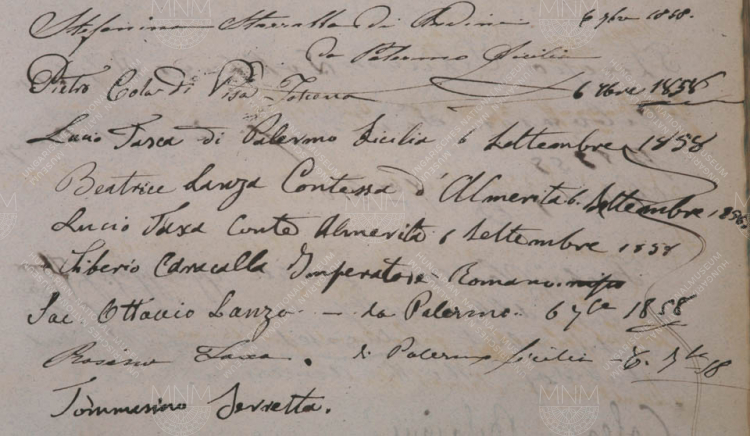 Stefanina Starrabba di Rudinì 6 7bre 1858.
da Palermo Sicilia
Pietro Cola di Pisa Toscana 6 7bre 1858
Lucio Tasca di Palermo Sicilia 6 Settembre 1858
Beatrice Lanza Contessa d'Almerita 6. Settembre 1858.
Lucio Tasca Conte Almerita 6 Settembre 1858
Tiberio Caracalla Imperatore Romano.
Sac. Ottavio Lanza - da Palermo. 6 7bre 1858
Rosina Tasca. di Palermo Sicilia - 6. 7bre 58
Tommasino Serretta.
MNM